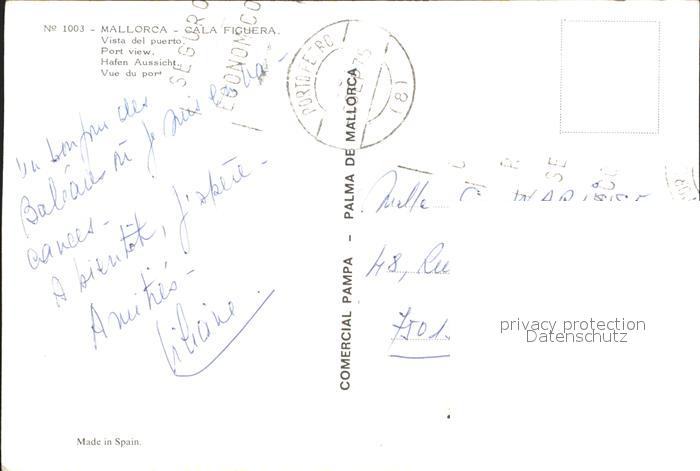 Nº 1003 - MALLORCA - CALA FIGUERA.
Vista del puerto.
Port view.
Hafen Aussicht.
Vue du port
SEGURO
ECONOMICO
PORTO
(8)
Un bonjour des
Baléares où je suis en va-
cances-
A bientôt, j'espère-
Amitiés-
Liliane
COMERCIAL PAMPA - PALMA DE MALLORCA
SE
Melle
48, Rue
7501
privacy protection
Datenschutz
Made in Spain.